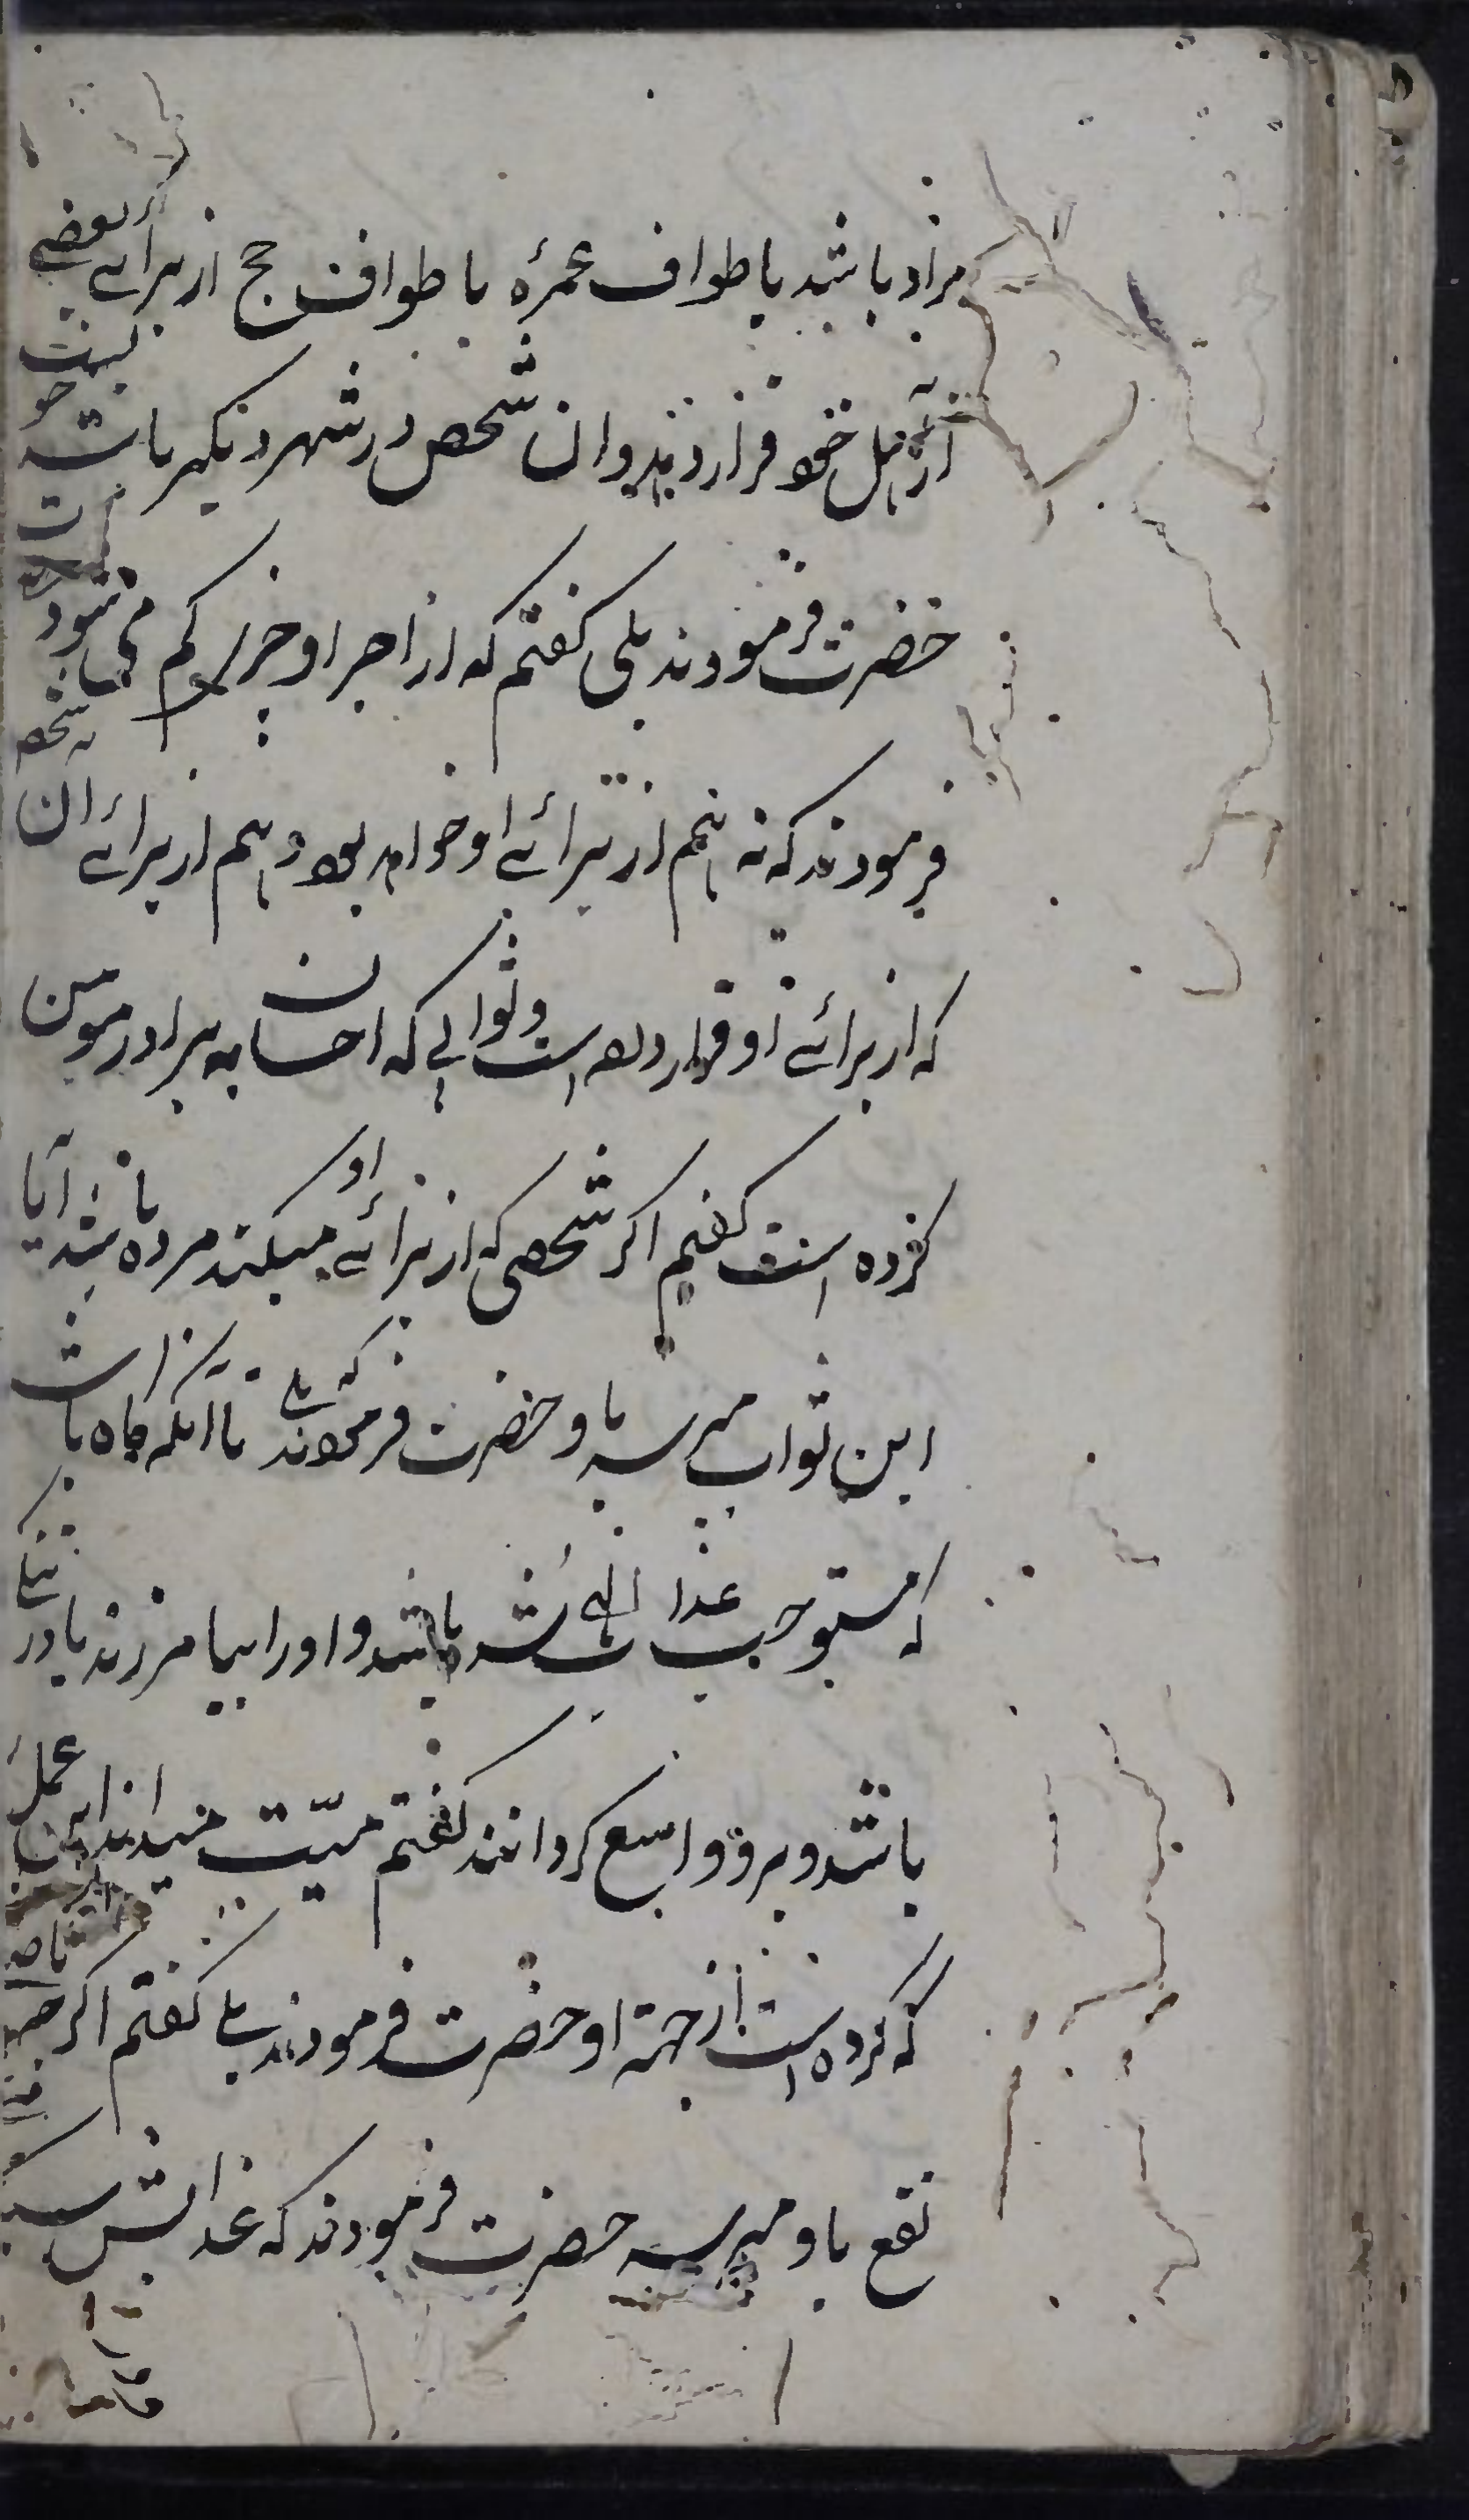 مراد باشد یا طواف عمره یا طواف حج از برائے بعضے
از اهل خود قرار دهد و ان شخص در شهر دیگر باشد
حضرت فرمودند بلی گفتم که از اجر او چیزی کم می شود
فرمودند که نه هم از برائے او خواهد بود و هم از برائے ان
که از برائے او قرار داده است و ثوابی که احسان به برادر مومن
کرده است گفتم اگر شخصی که از برائے او میکند مرده باشد آیا
این ثواب میرسد باو حضرت فرمودند که بلے تا آنکه گاه باشد
که مستوجب عذاب الهی شده باشد و او را بیامرزند یا در تنگی
باشد و برو واسع گردانند گفتم میّت میداند این عمل
که کرده است از جهة او حضرت فرمودند بلے گفتم اگر چه
نفع باو میرسد حضرت فرمودند که عذابش